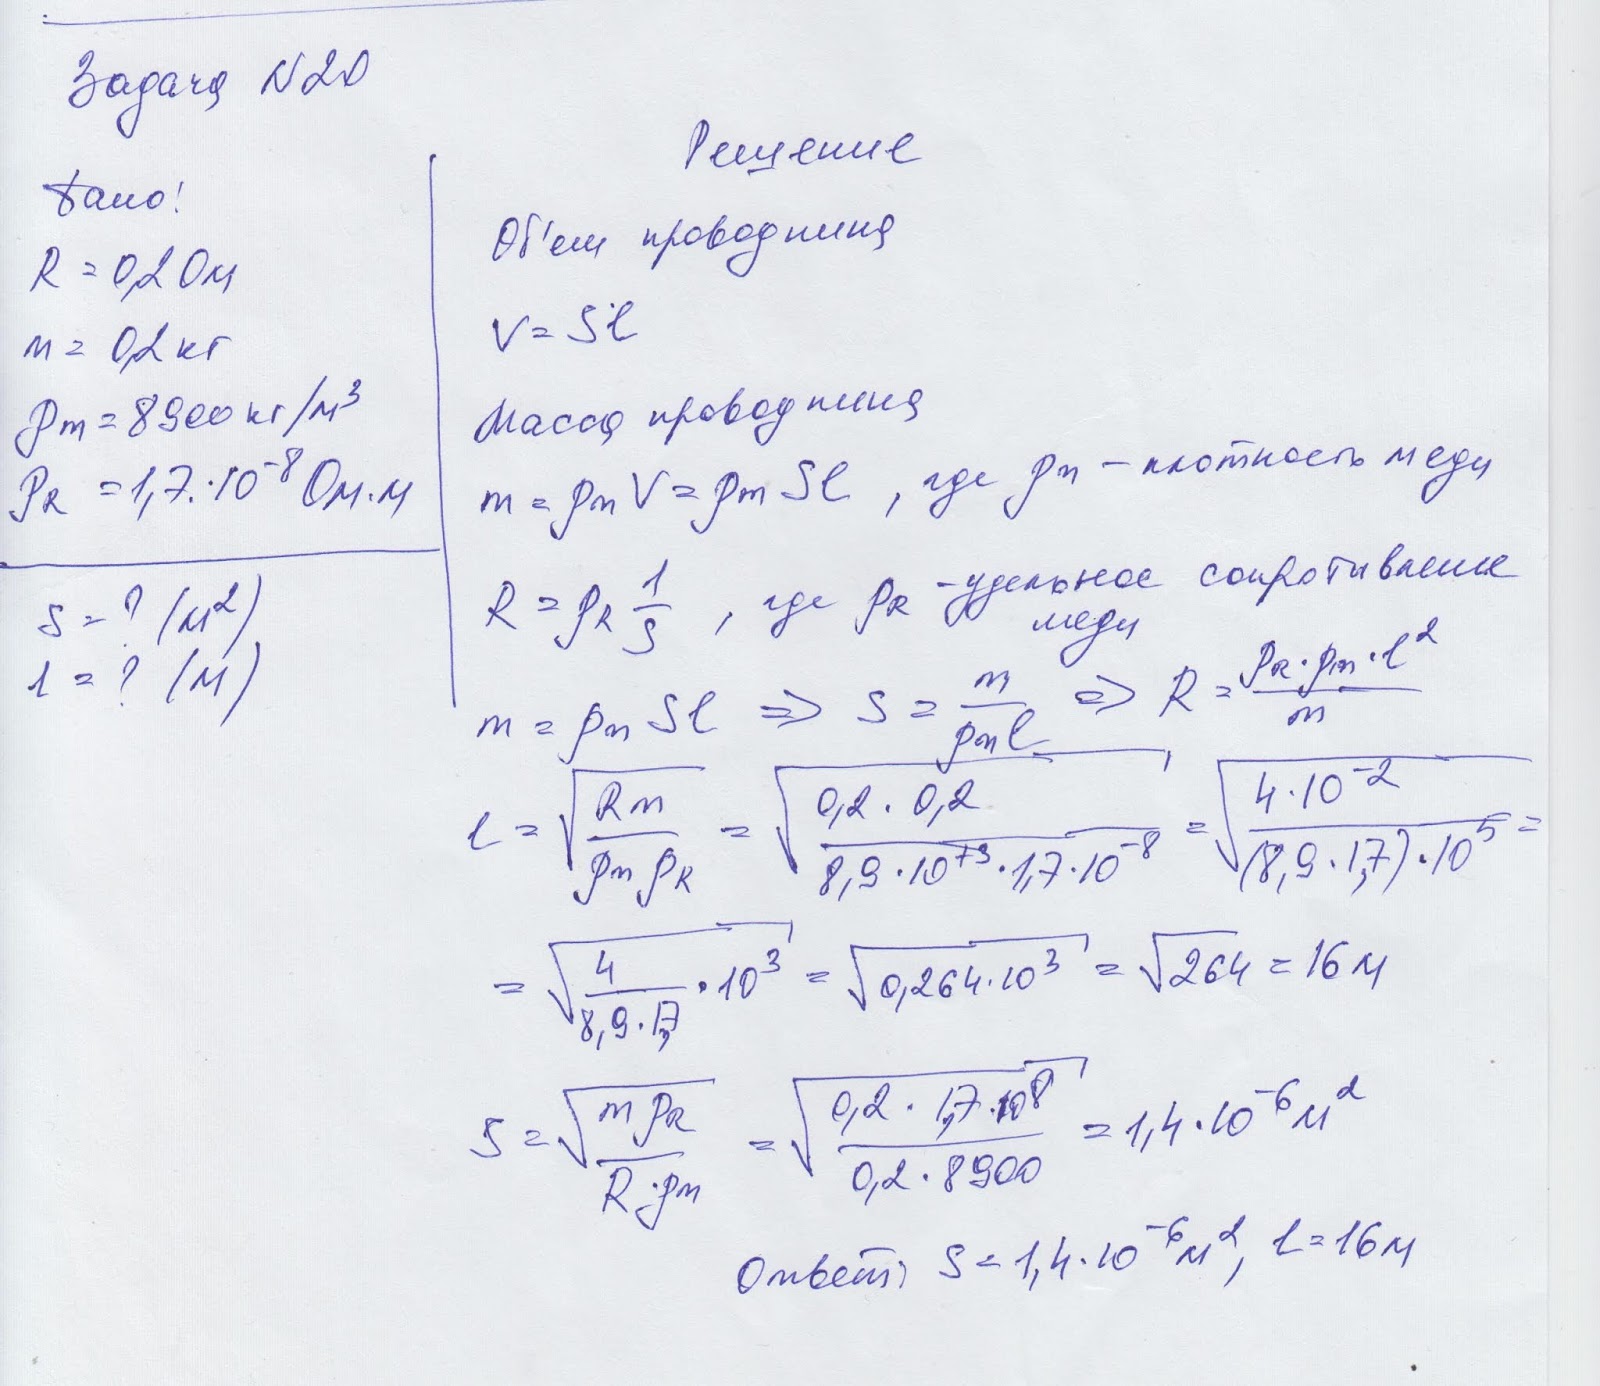 Задача N20
Дано!
R = 0,2 Ом
m = 0,2 кг
ρm = 8900 кг/м³
ρR = 1,7·10⁻⁸ Ом·м
S = ? (м²)
l = ? (м)
Решение
Об'ем проводника
V = Sl
Масса проводника
m = ρm V = ρm Sl , где ρm – плотность меди
R = ρR l/S , где ρR – удельное сопротивление
меди
m = ρm Sl ⇒ S = m/(ρm l) ⇒ R = (ρR·ρm·l²)/m
l = √(Rm/(ρm ρR)) = √((0,2·0,2)/(8,9·10⁺³·1,7·10⁻⁸)) = √((4·10⁻²)/((8,9·1,7)·10⁵)) =
= √(4/(8,9·1,7)·10³) = √(0,264·10³) = √264 = 16 м
S = √(mρR/(R·ρm)) = √((0,2·1,7·10⁸)/(0,2·8900)) = 1,4·10⁻⁶ м²
Ответ: S = 1,4·10⁻⁶ м², l = 16 м